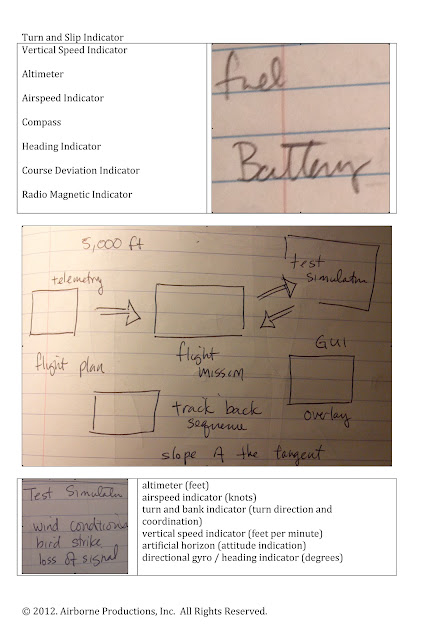 Turn and Slip Indicator
Vertical Speed Indicator
Altimeter
Airspeed Indicator
Compass
Heading Indicator
Course Deviation Indicator
Radio Magnetic Indicator
fuel
Battery
5,000 ft
telemetry
test
simulator
flight plan
flight
mission
GUI
track back
sequence
overlay
slope of the tangent
Test Simulator
wind conditions
bird strike
loss of signal
altimeter (feet)
airspeed indicator (knots)
turn and bank indicator (turn direction and
coordination)
vertical speed indicator (feet per minute)
artificial horizon (attitude indication)
directional gyro / heading indicator (degrees)
© 2012. Airborne Productions, Inc. All Rights Reserved.